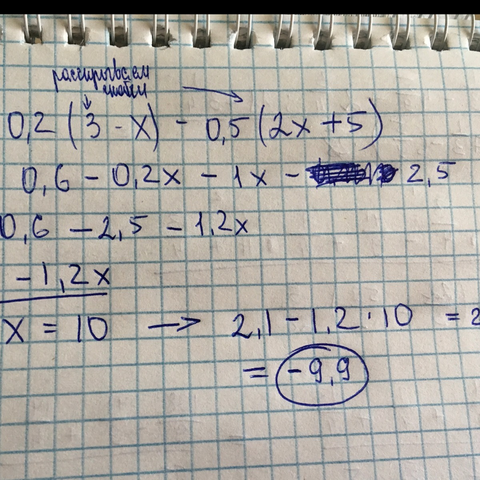 раскрываем
скобки
0,2 (3 - x) - 0,5 (2x + 5)
0,6 - 0,2x - 1x - 2,5
0,6 - 2,5 - 1,2x
- 1,2x
x = 10 → 2,1 - 1,2 · 10 = 2
= -9,9